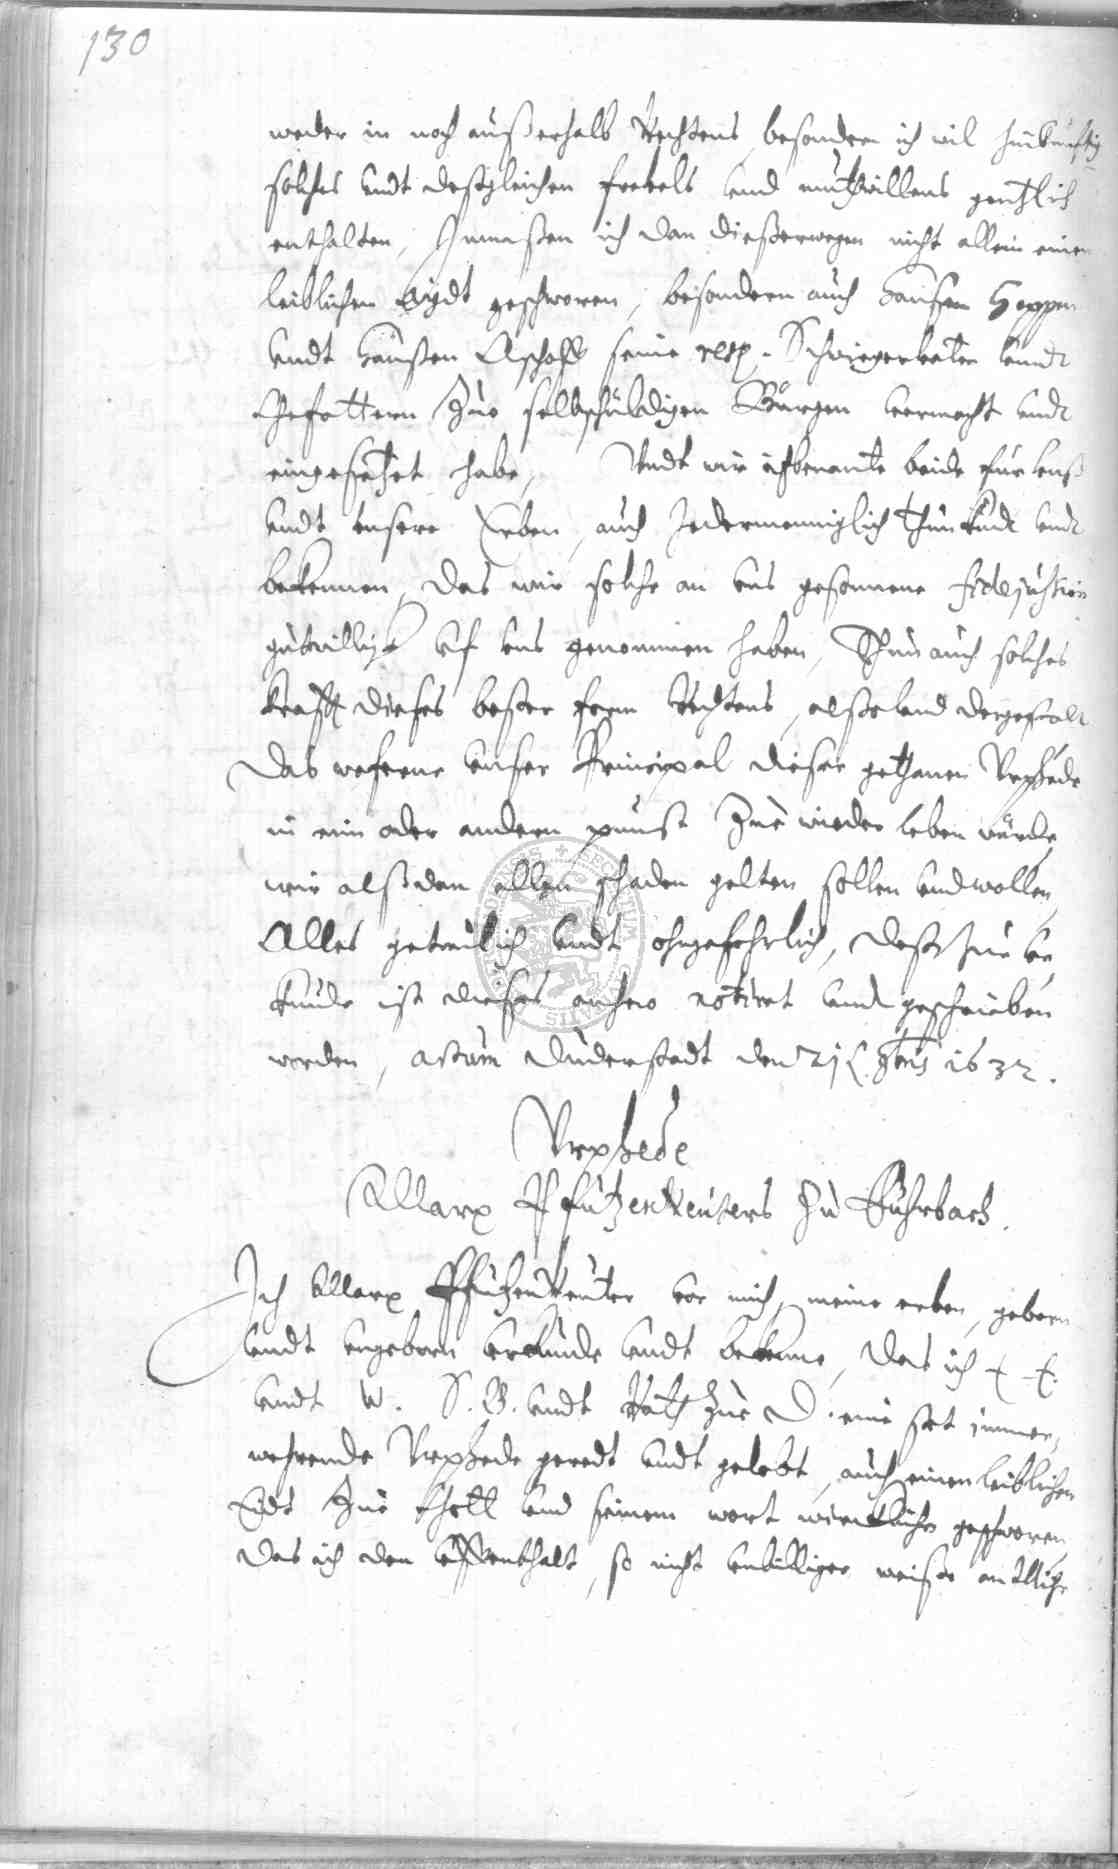 130
weder in noch außerhalb Rechtens, besondern ich wil hinkünftig
solches undt deßgleichen frevels und muthwillens gentzlich
enthalten, Inmaßen ich dan dießerwegen nicht allein einen
leiblichen Eydt geschworen, besondern auch Hansen Heppen
undt Hanßen Aschoff seine resp. Schwiegervater undt
Gefattern Zue selbschuldigen Bürgen vermocht undt
eingesetzet habe, Undt wir itzbenante beide für unß
undt unsere Erben, auch Jedermenniglich thun kundt undt
bekennen, das wir solche an uns gesonnene fidejussion
gutwillig uf uns genommen haben, Thun auch solches
krafft dieses bester form Rechtens, alßo und dergestalt
das woferne unser Principal dieser gethanen Urphede
in ein oder andern punct Zue wieder leben würde,
wir alßdan allen schaden gelten sollen und wollen,
Alles getreulich undt ohngefehrlich, deß zu ur
kunde ist dieses anhero notiret und geschrieben
worden, actum Duderstadt den 21 1632.
Urphede
Marx Pfützenreuters Zu Fuhrbach.
Ich Marx Pfützenreuter vor mich, meine erben, geborn
undt ungeborn urkunde undt bekenne, das ich E. E.
undt W. H. B. undt Rath Zue D. eine stet immer,
wehrende Urphede geredt undt gelobt, auch einen leiblichen
Eidt Zue Gott und seinem wort würcklichen geschworen,
das ich den uffenthalt, so nicht unbilliger weiße